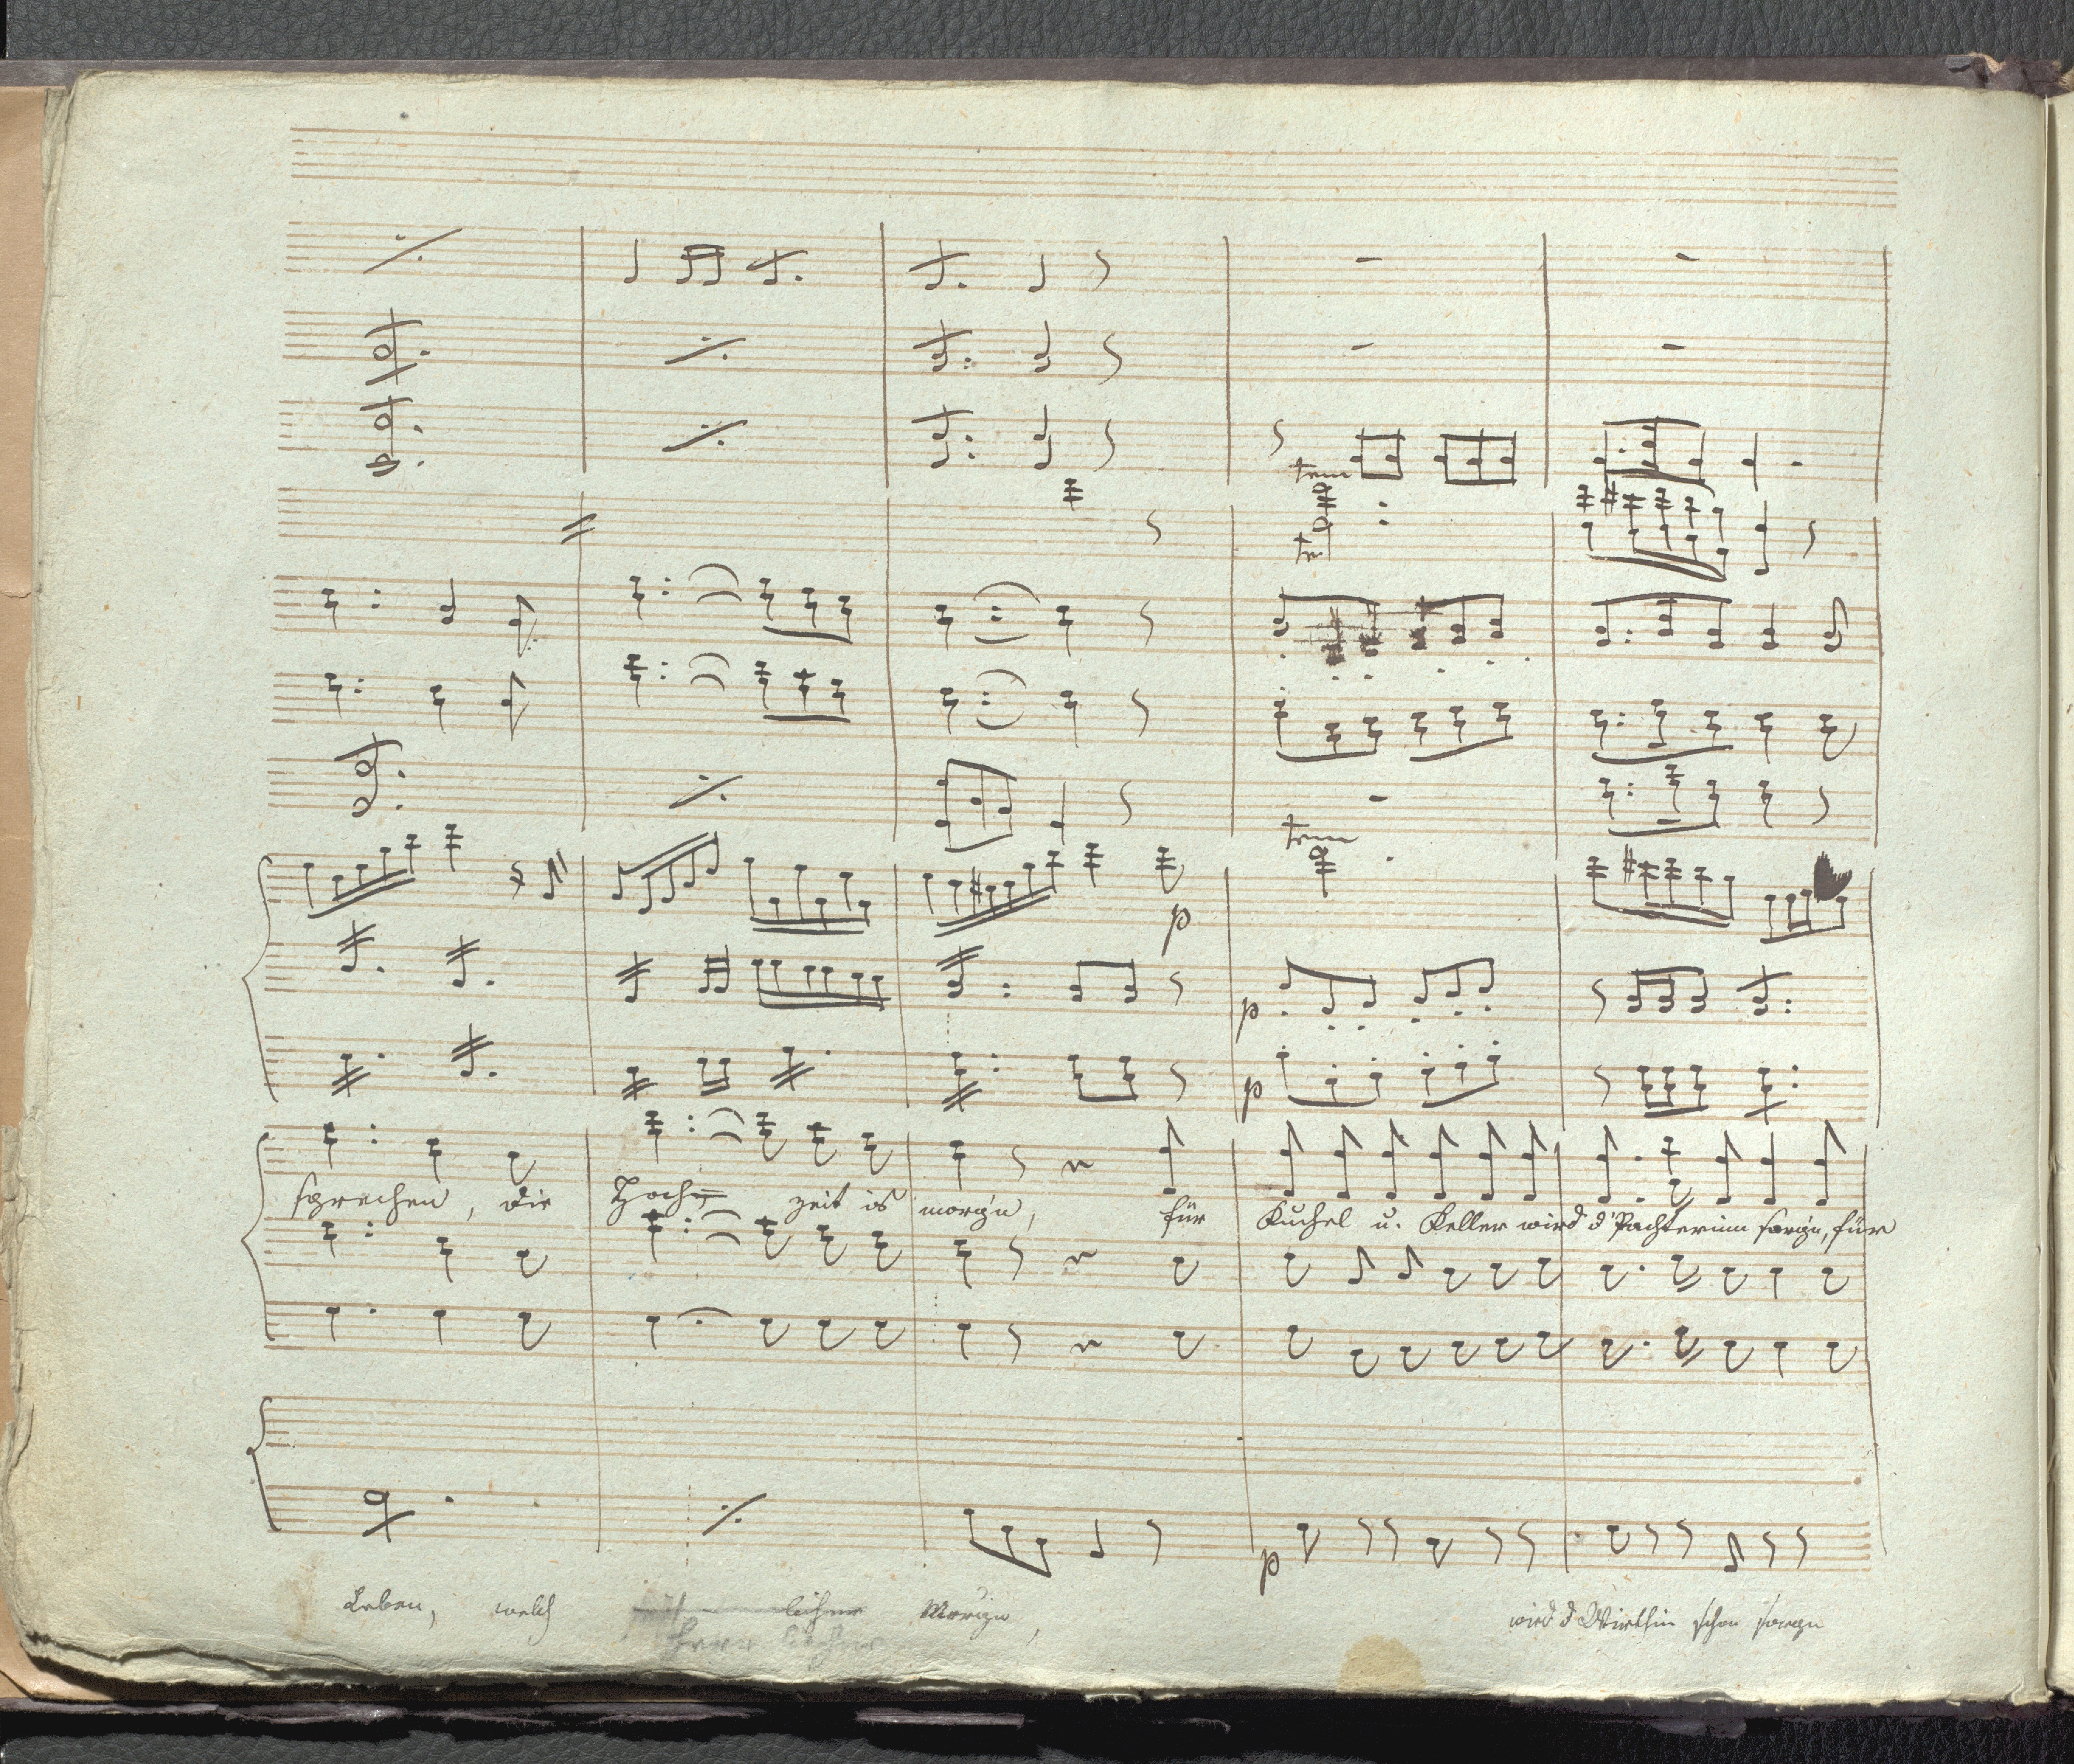 trm
tr
trm
p
p
p
sprechen, die Hoch= zeit is morg'n, für Kuchel u. Keller wird d'Pachterinn sorg'n, für
p
Leben, welch Morign, wird d Wirthin schon sorgn